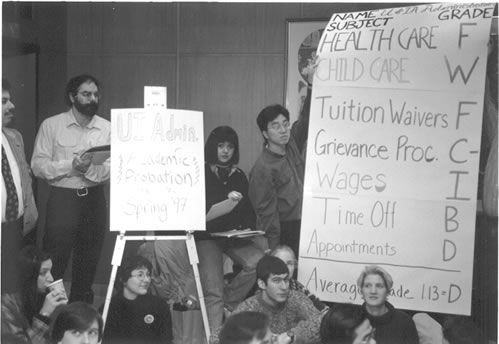 UI Admin.
Academic
Probation
Spring '97
NAME GRADE
SUBJECT
HEALTH CARE F
CHILD CARE W
Tuition Waivers F
Grievance Proc. C-
Wages I
Time Off B
Appointments D
Average Grade 1.13=D